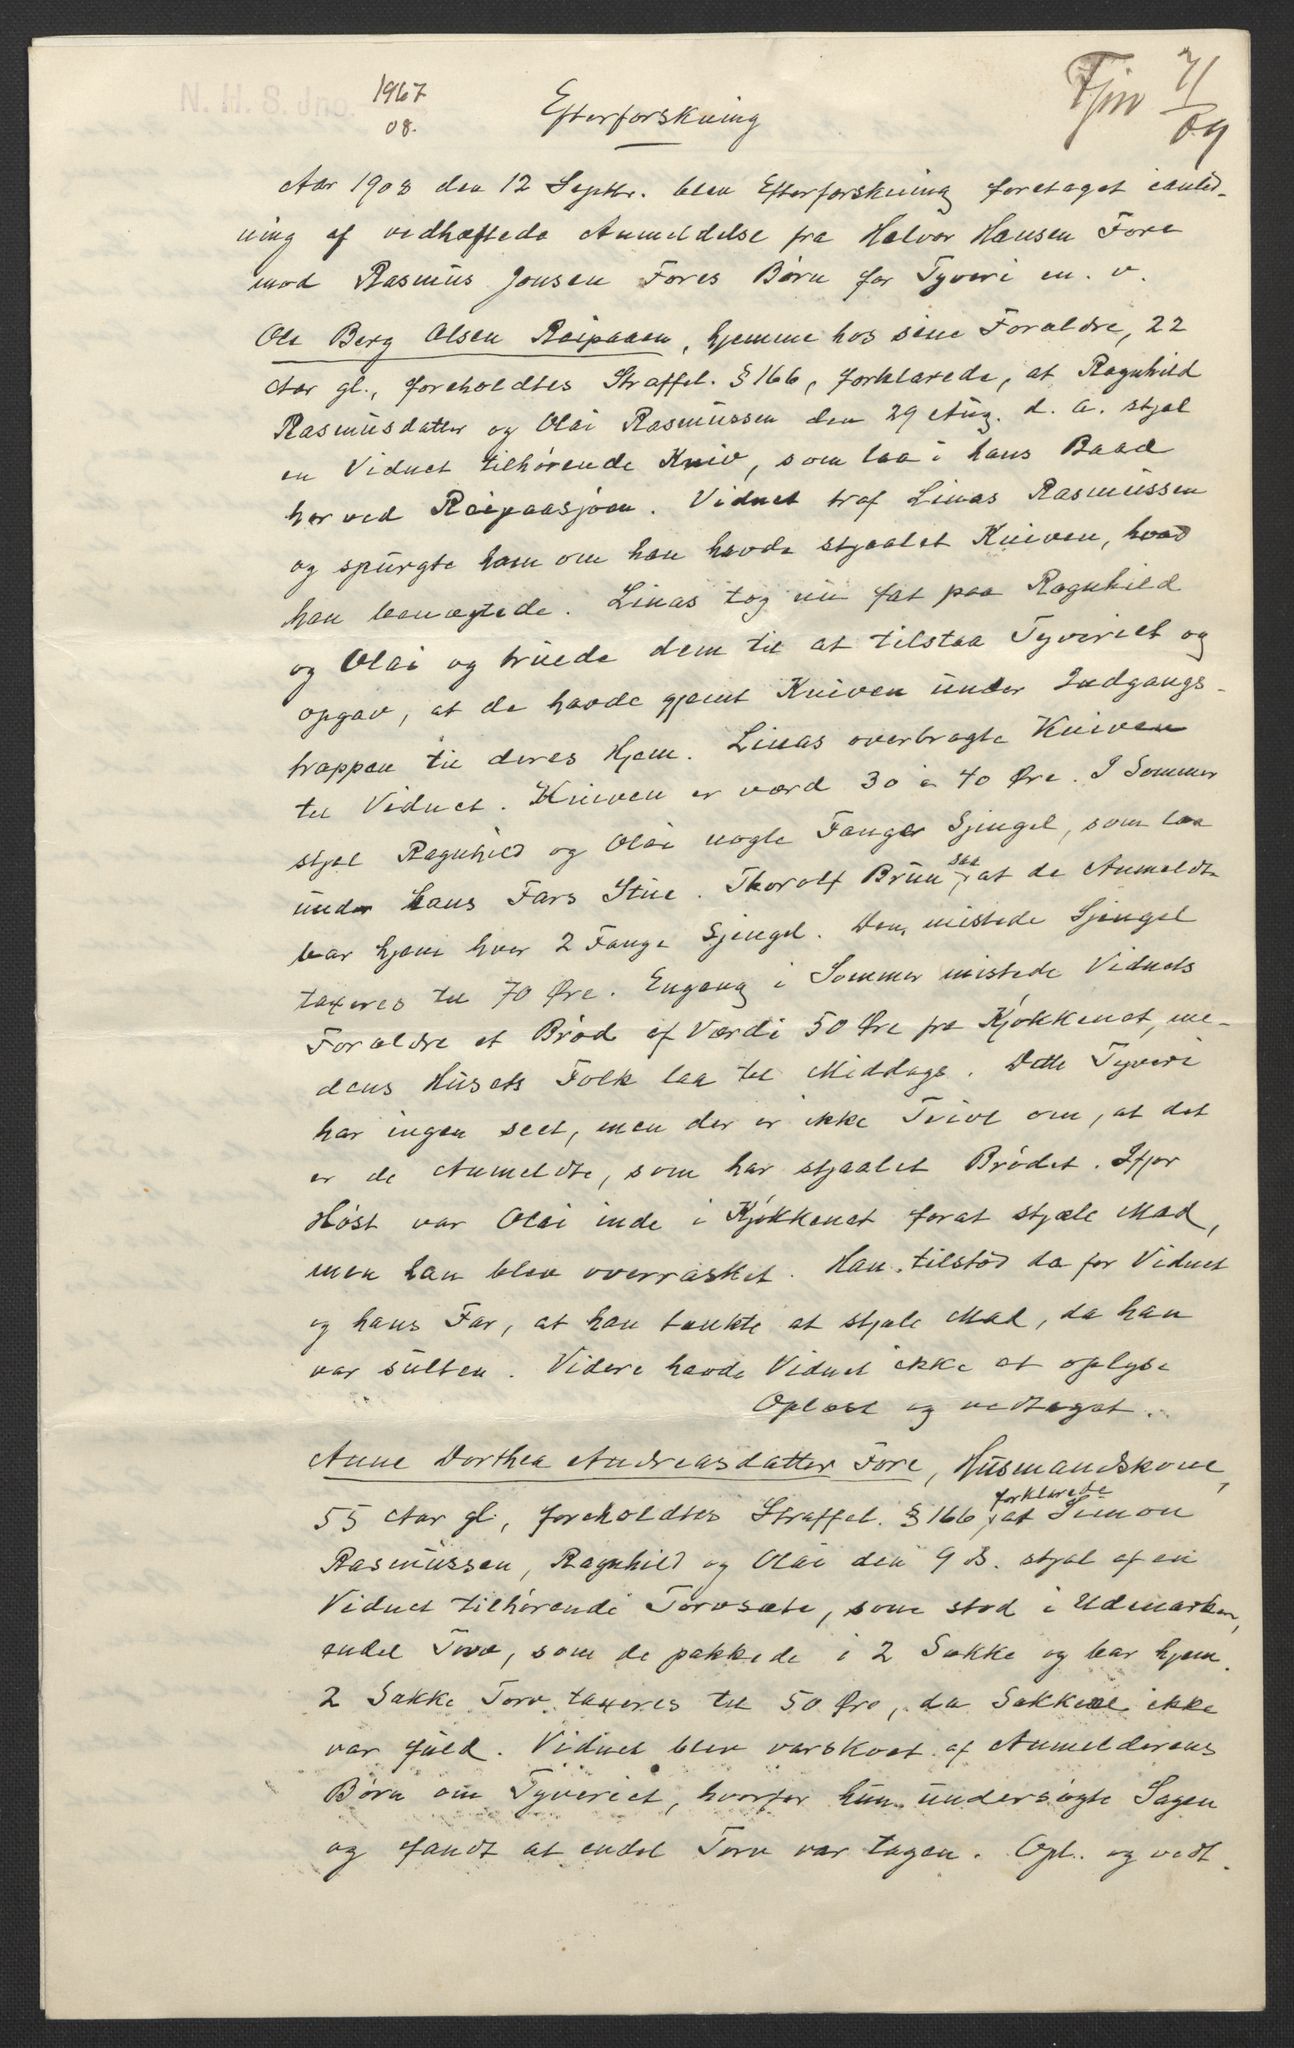 N. H. S. Jno. 1967
08.
Fjm 7/1 09
Efterforskning
Aar 1908 den 12 Septbr. blev Efterforskning foretaget ianled-
ning af vedhæftede Anmeldelse fra Halvor Hansen Fore
mod Rasmus Jonsen Fores Børn for Tyveri m. v.
Ole Berg Olsen Reipaaen, hjemme hos sine Forældre, 22
Aar gl., foreholdtes Straffel. § 166, forklarede, at Ragnhild
Rasmusdatter og Olai Rasmussen den 29 Aug. d. a. stjal
en Vidnet tilhørende Kniv, som laa i hans Baad
her ved Reipaasjøen. Vidnet traf Linas Rasmussen
og spurgte ham om han havde stjaalet Kniven, hvad
han benægtede. Linas tog nu fat paa Ragnhild
og Olai og truede dem til at tilstaa Tyveriet og
opgav, at de havde gjemt Kniven under Indgangs-
trappen til deres Hjem. Linas overbragte Kniven
til Vidnet. Kniven er værd 30 à 40 Øre. I Sommer
stjal Ragnhild og Olai nogle Fanger Sjengel, som laa
under hans Fars Stue. Thorolf Brun saa, at de Anmeldte
bar hjem hver 2 Fange Sjengel. Den mistede Sjengel
taxeres til 70 Øre. Engang i Sommer mistede Vidnets
Forældre et Brød af Værdi 50 Øre fra Kjøkkenet, me-
dens Husets Folk laa til Middags. Dette Tyveri
har ingen seet, men der er ikke Tvivl om, at det
er de Anmeldte, som har stjaalet Brødet. Ifjor
Høst var Olai inde i Kjøkkenet forat stjæle Mad,
men han blev overrasket. Han tilstod da for Vidnet
og hans Far, at han tænkte at stjæle Mad, da han
var sulten. Videre havde Vidnet ikke at oplyse
Oplæst og vedtaget.
Anne Dorthea Andreasdatter Fore, Husmandskone,
55 Aar gl., foreholdtes Straffel. § 166, forklarede at Simon
Rasmussen, Ragnhild og Olai den 9 ds. stjal af en
Vidnet tilhørende Torvsæte, som stod i Udmarken,
endel Torv, som de pakkede i 2 Sække og bar hjem.
2 Sække Torv taxeres til 50 Øre, da Sækkene ikke
var fuld. Vidnet blev varskoet af Anmelderens
Børn om Tyveriet, hvorfor hun undersøgte Sagen
og fandt at endel Torv var tagen. Opl. og vedt.